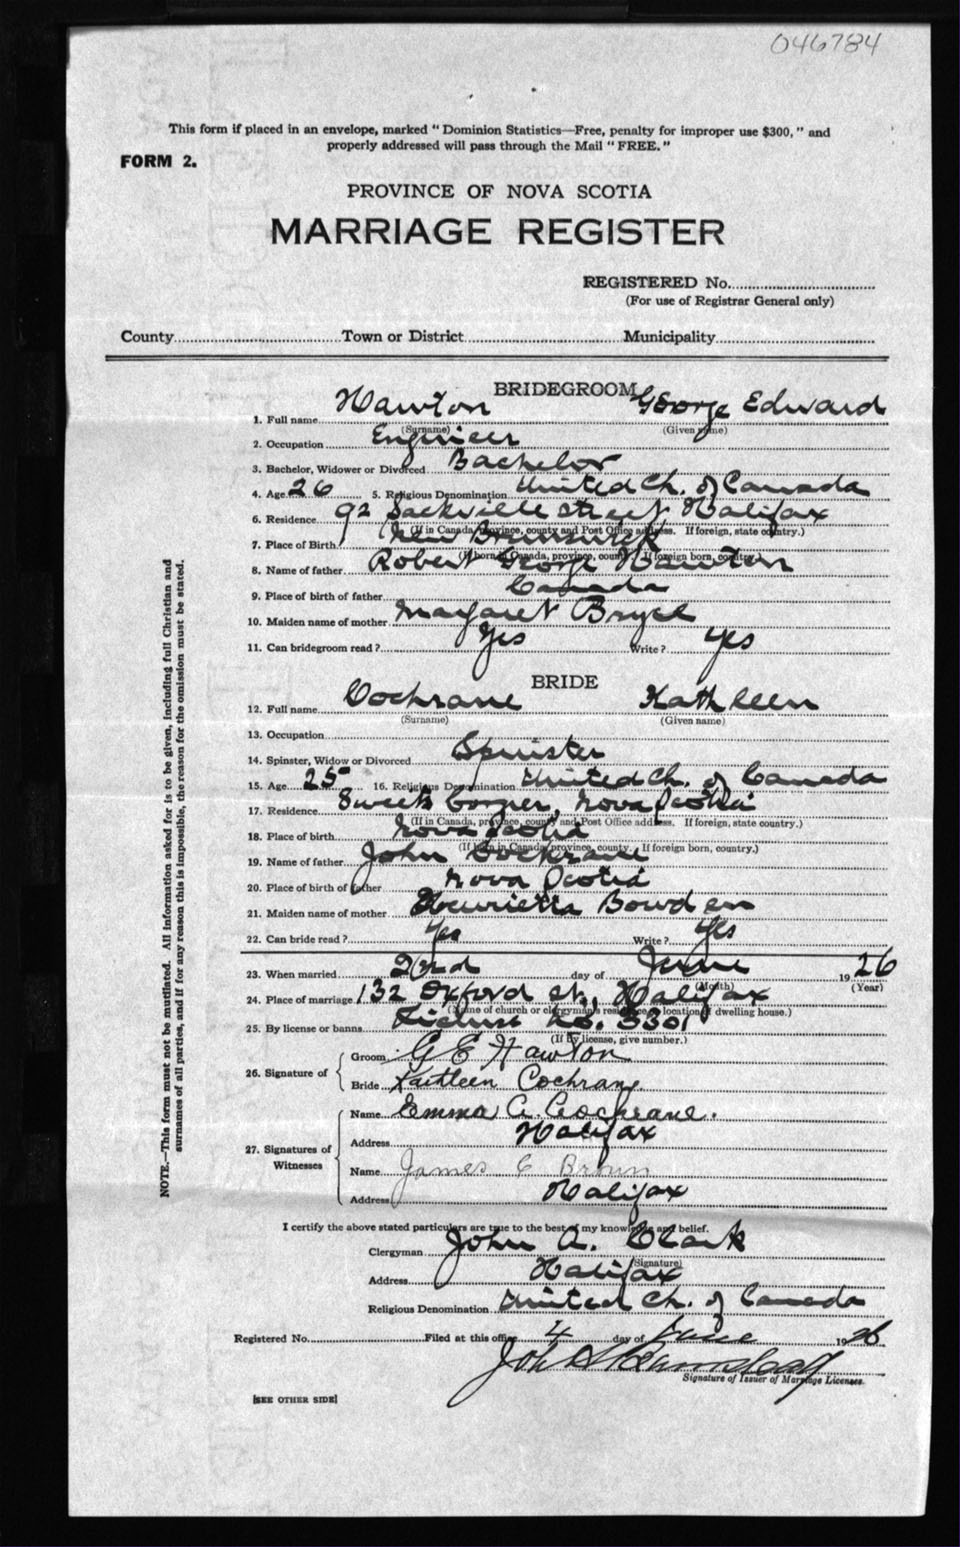 046784
This form if placed in an envelope, marked " Dominion Statistics—Free, penalty for improper use $300, " and
properly addressed will pass through the Mail " FREE. "
FORM 2.
PROVINCE OF NOVA SCOTIA
MARRIAGE REGISTER
REGISTERED No.
(For use of Registrar General only)
County Town or District Municipality
BRIDEGROOM
1. Full name Hawton George Edward
(Surname) (Given name)
2. Occupation Engineer
3. Bachelor, Widower or Divorced Bachelor
4. Age 26 5. Religious Denomination United Ch. of Canada
6. Residence 92 Sackville Street Halifax
(If in Canada, province, county and Post Office address. If foreign, state country.)
7. Place of Birth New Brunswick
(If born in Canada, province, county. If foreign born, country.)
8. Name of father Robert George Hawton
9. Place of birth of father Canada
10. Maiden name of mother Margaret Bryce
11. Can bridegroom read? Yes Write? Yes
BRIDE
12. Full name Cochrane Kathleen
(Surname) (Given name)
13. Occupation
14. Spinster, Widow or Divorced Spinster
15. Age 25 16. Religious Denomination United Ch. of Canada
17. Residence Sweets Corner, Nova Scotia
(If in Canada, province, county and Post Office address. If foreign, state country.)
18. Place of birth Nova Scotia
(If born in Canada, province, county. If foreign born, country.)
19. Name of father John Cochrane
20. Place of birth of father Nova Scotia
21. Maiden name of mother Henrietta Bowden
22. Can bride read? Yes Write? Yes
23. When married day of June 1926
(Month) (Year)
24. Place of marriage 132 Oxford St., Halifax
(Name of church or clergyman's residence or location of dwelling house.)
25. By license or banns License No. 3301
(If by license, give number.)
26. Signature of
Groom G E Hawton
Bride Kathleen Cochrane
27. Signatures of Witnesses
Name Emma A. Cochrane.
Address Halifax
Name James C Brown
Address Halifax
I certify the above stated particulars are true to the best of my knowledge and belief.
Clergyman John A. Clark
(Signature)
Address Halifax
Religious Denomination United Ch. of Canada
Registered No. Filed at this office 4 day of June 1926
Signature of Issuer of Marriage Licenses.
[SEE OTHER SIDE]
NOTE.—This form must not be mutilated. All information asked for is to be given, including full Christian and
surnames of all parties, and if for any reason this is impossible, the reason for the omission must be stated.